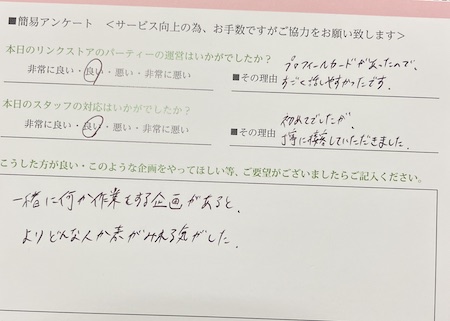 ■簡易アンケート <サービス向上の為、お手数ですがご協力をお願い致します>
本日のリンクストアのパーティーの運営はいかがでしたか?
非常に良い・良い・悪い・非常に悪い
■その理由
プロフィールカードがあったので、
すごく話しやすかったです。
本日のスタッフの対応はいかがでしたか?
非常に良い・良い・悪い・非常に悪い
■その理由
初めてでしたが、
丁寧に接客していただきました。
こうした方が良い・このような企画をやってほしい等、ご要望がございましたらご記入ください。
一緒に何か作業をする企画があると、
よりどんな人か素がみれる気がした。